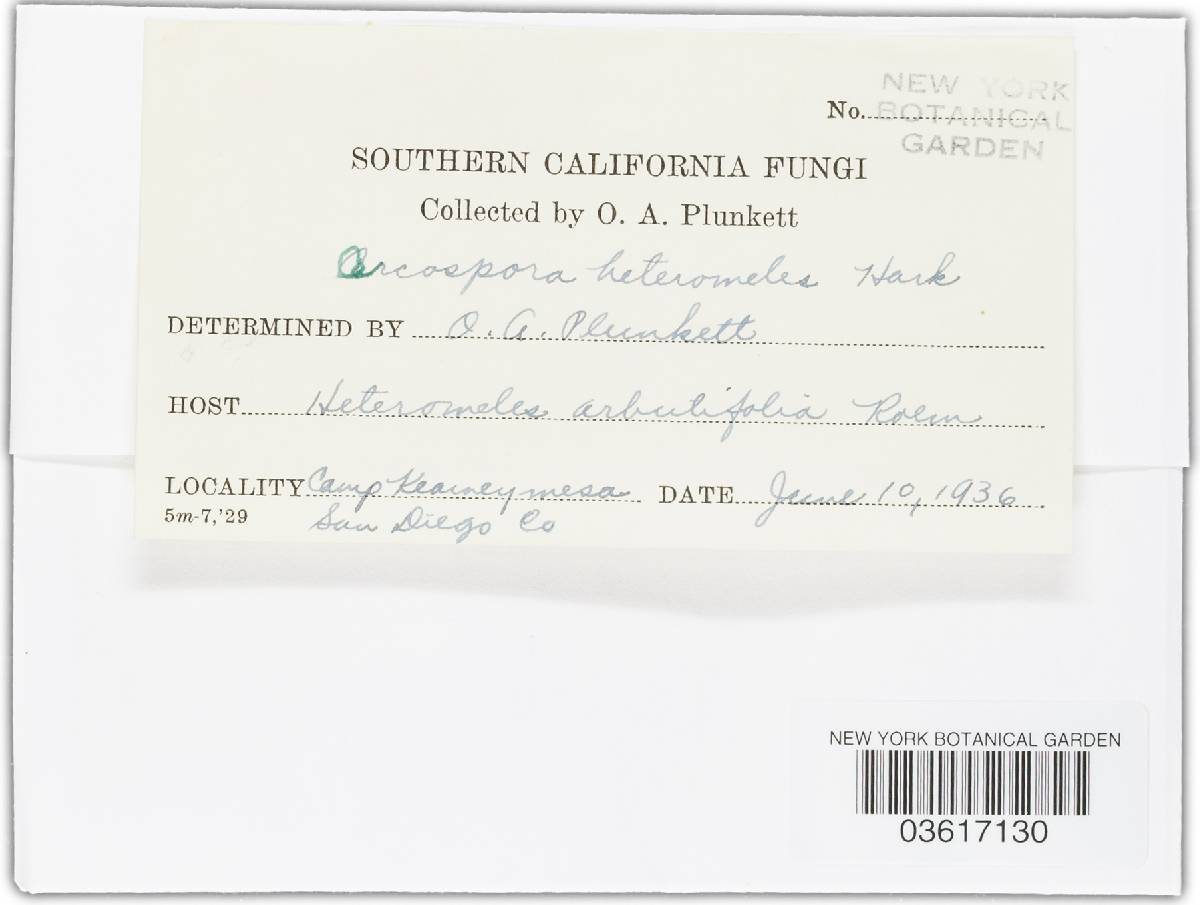 NEW YORK
BOTANICAL
GARDEN
No.
SOUTHERN CALIFORNIA FUNGI
Collected by O. A. Plunkett
Cercospora heteromeles Hark
DETERMINED BY O. A. Plunkett
HOST Heteromeles arbutifolia Roem
LOCALITY Camp Kearney mesa DATE June 10, 1936
5m-7,'29 San Diego Co
NEW YORK BOTANICAL GARDEN
03617130